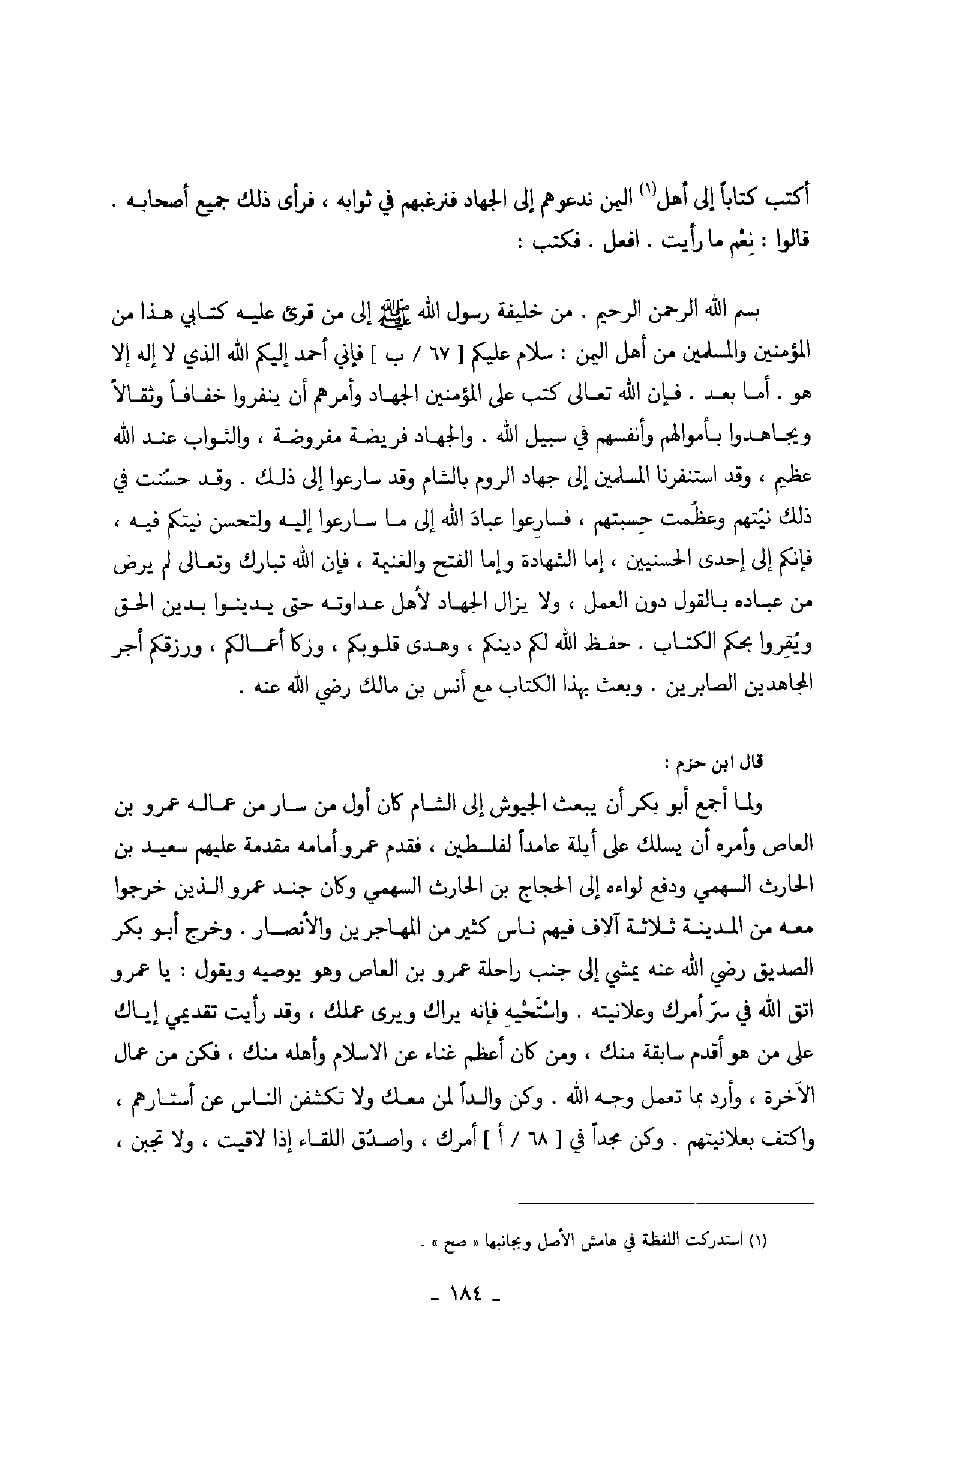 أكتب كتاباً إلى أهل(١) اليمن ندعوهم إلى الجهاد فنرغبهم في ثوابه ، فرأى ذلك جميع أصحابه .
قالوا : نِعْم ما رأيت . افعل . فكتب :
بسم الله الرحمن الرحيم . من خليفة رسول الله ﷺ إلى من قرئ عليه كتابي هذا من
المؤمنين والمسلمين من أهل اليمن : سلام عليكم [ ٦٧ / ب ] فإني أحمد إليكم الله الذي لا إله إلا
هو . أما بعد . فإن الله تعالى كتب على المؤمنين الجهاد وأمرهم أن ينفروا خفافاً وثقالاً
ويجاهدوا بأموالهم وأنفسهم في سبيل الله . والجهاد فريضة مفروضة ، والثواب عند الله
عظيم ، وقد استنفرنا المسلمين إلى جهاد الروم بالشام وقد سارعوا إلى ذلك . وقد حسُنت في
ذلك نيّتهم وعظُمت حِسبتهم ، فسارِعوا عبادَ الله إلى ما سارعوا إليه ولتحسن نيتكم فيه ،
فإنكم إلى إحدى الحسنيين ، إما الشهادة وإما الفتح والغنيمة ، فإن الله تبارك وتعالى لم يرض
من عباده بالقول دون العمل ، ولا يزال الجهاد لأهل عداوته حتى يدينوا بدين الحق
ويُقِروا بحكم الكتاب . حفظ الله لكم دينكم ، وهدى قلوبكم ، وزكا أعمالكم ، ورزقكم أجر
المجاهدين الصابرين . وبعث بهذا الكتاب مع أنس بن مالك رضي الله عنه .
قال ابن حزم :
ولما أجمع أبو بكر أن يبعث الجيوش إلى الشام كان أول من سار من عماله عمرو بن
العاص وأمره أن يسلك على أيلة عامداً لفلسطين ، فقدم عمرو أمامه مقدمة عليهم سعيد بن
الحارث السهمي ودفع لواءه إلى الحجاج بن الحارث السهمي وكان جند عمرو الذين خرجوا
معه من المدينة ثلاثة آلاف فيهم ناس كثير من المهاجرين والأنصار . وخرج أبو بكر
الصديق رضي الله عنه يمشي إلى جنب راحلة عمرو بن العاص وهو يوصيه ويقول : يا عمرو
اتق الله في سرّ أمرك وعلانيته . واسْتَحْيِهِ فإنه يراك ويرى عملك ، وقد رأيت تقديمي إياك
على من هو أقدم سابقة منك ، ومن كان أعظم غناء عن الاسلام وأهله منك ، فكن من عمال
الآخرة ، وأرد بما تعمل وجه الله . وكن والداً لمن معك ولا تكشفن الناس عن أستارهم ،
واكتف بعلانيتهم . وكن مجداً في [ ٦٨ / أ ] أمرك ، واصدُق اللقاء إذا لاقيت ، ولا تجبن ،
(١) استدركت اللفظة في هامش الأصل وبجانبها « صح » .
ـ ١٨٤ ـ